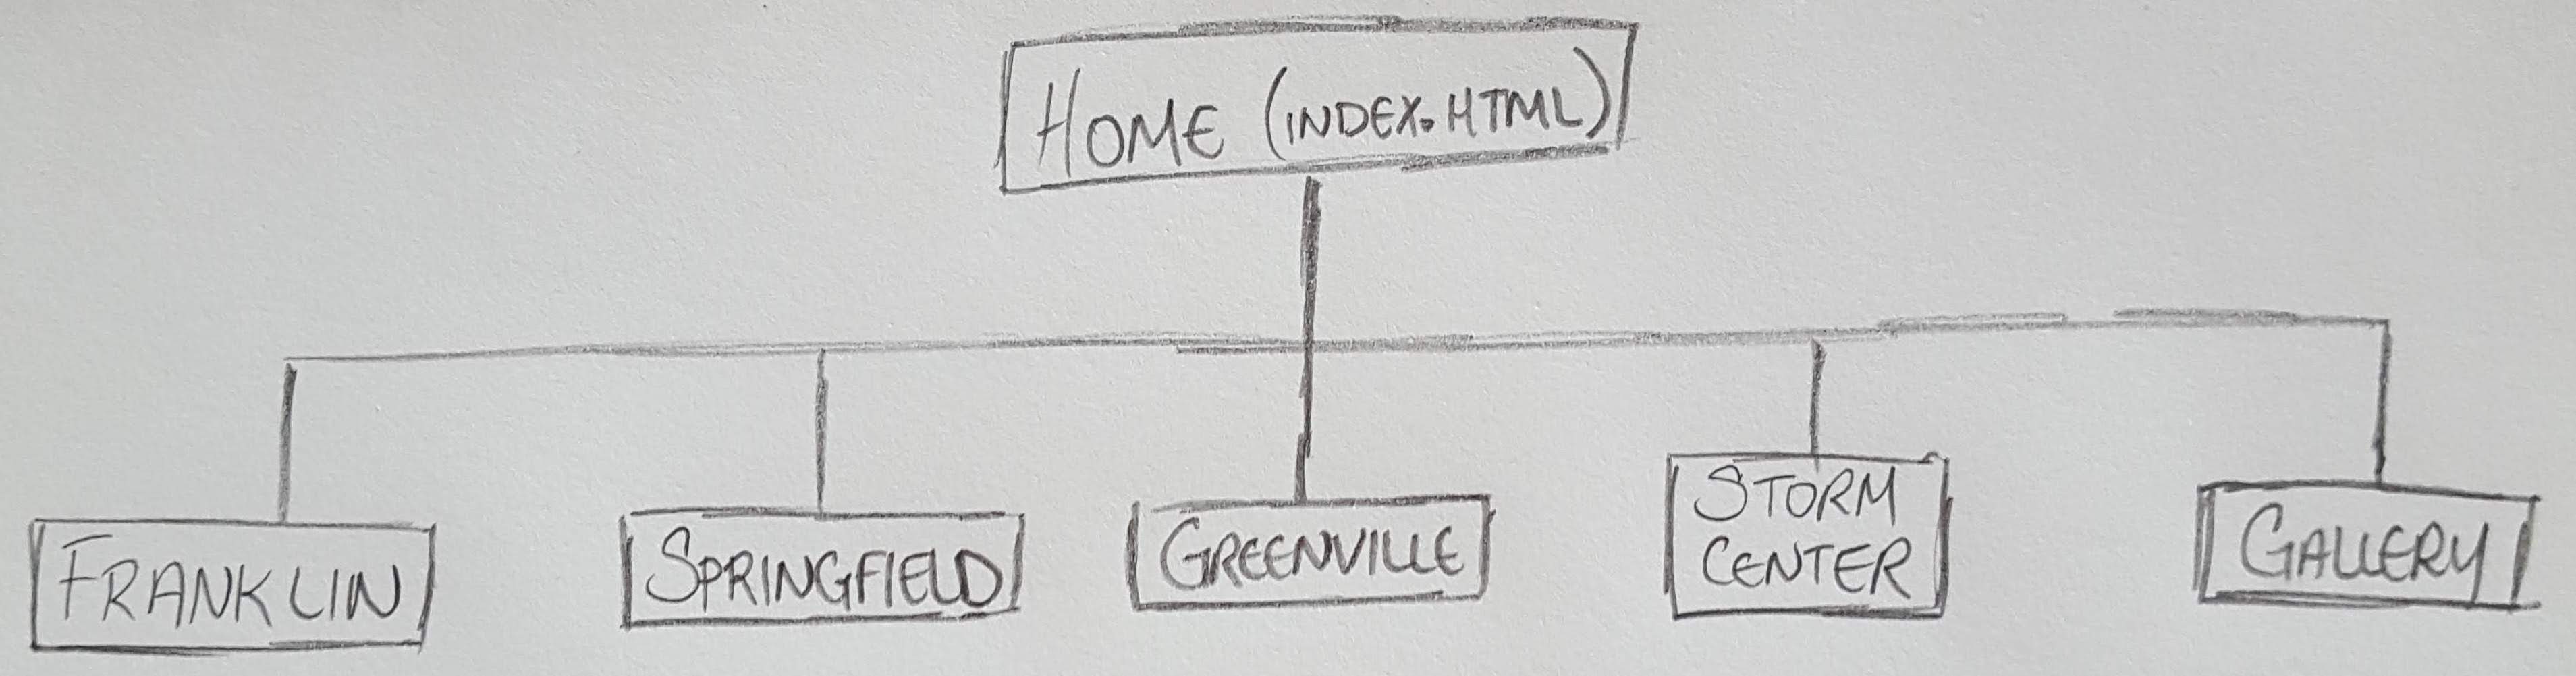 HOME (INDEX.HTML)
FRANKLIN
SPRINGFIELD
GREENVILLE
STORM
CENTER
GALLERY